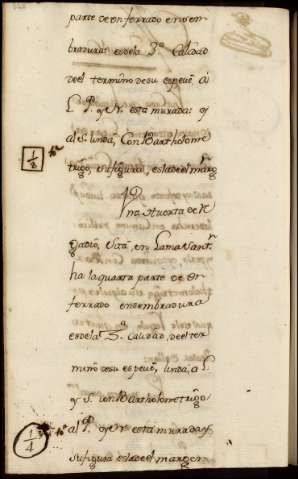 parte de un ferrado en sem
bradura: es de la 3ª Calidad
de el termino de su espeue, â
L. P. y N. esta murada: y
al S. linda, Con Bartholome
1/8 trigo, su figura, es la de el marg.n
Una Huerta de Re
gadio, Sita, en Lama
ha la quarta parte de un
ferrado en sembradura
es de la 3ª Calidad, de el ter
mino de su espeue, linda, a L.
y S. con Bartholome trigo
al P. y N. esta murada y
1/4 su figura es la de el margen